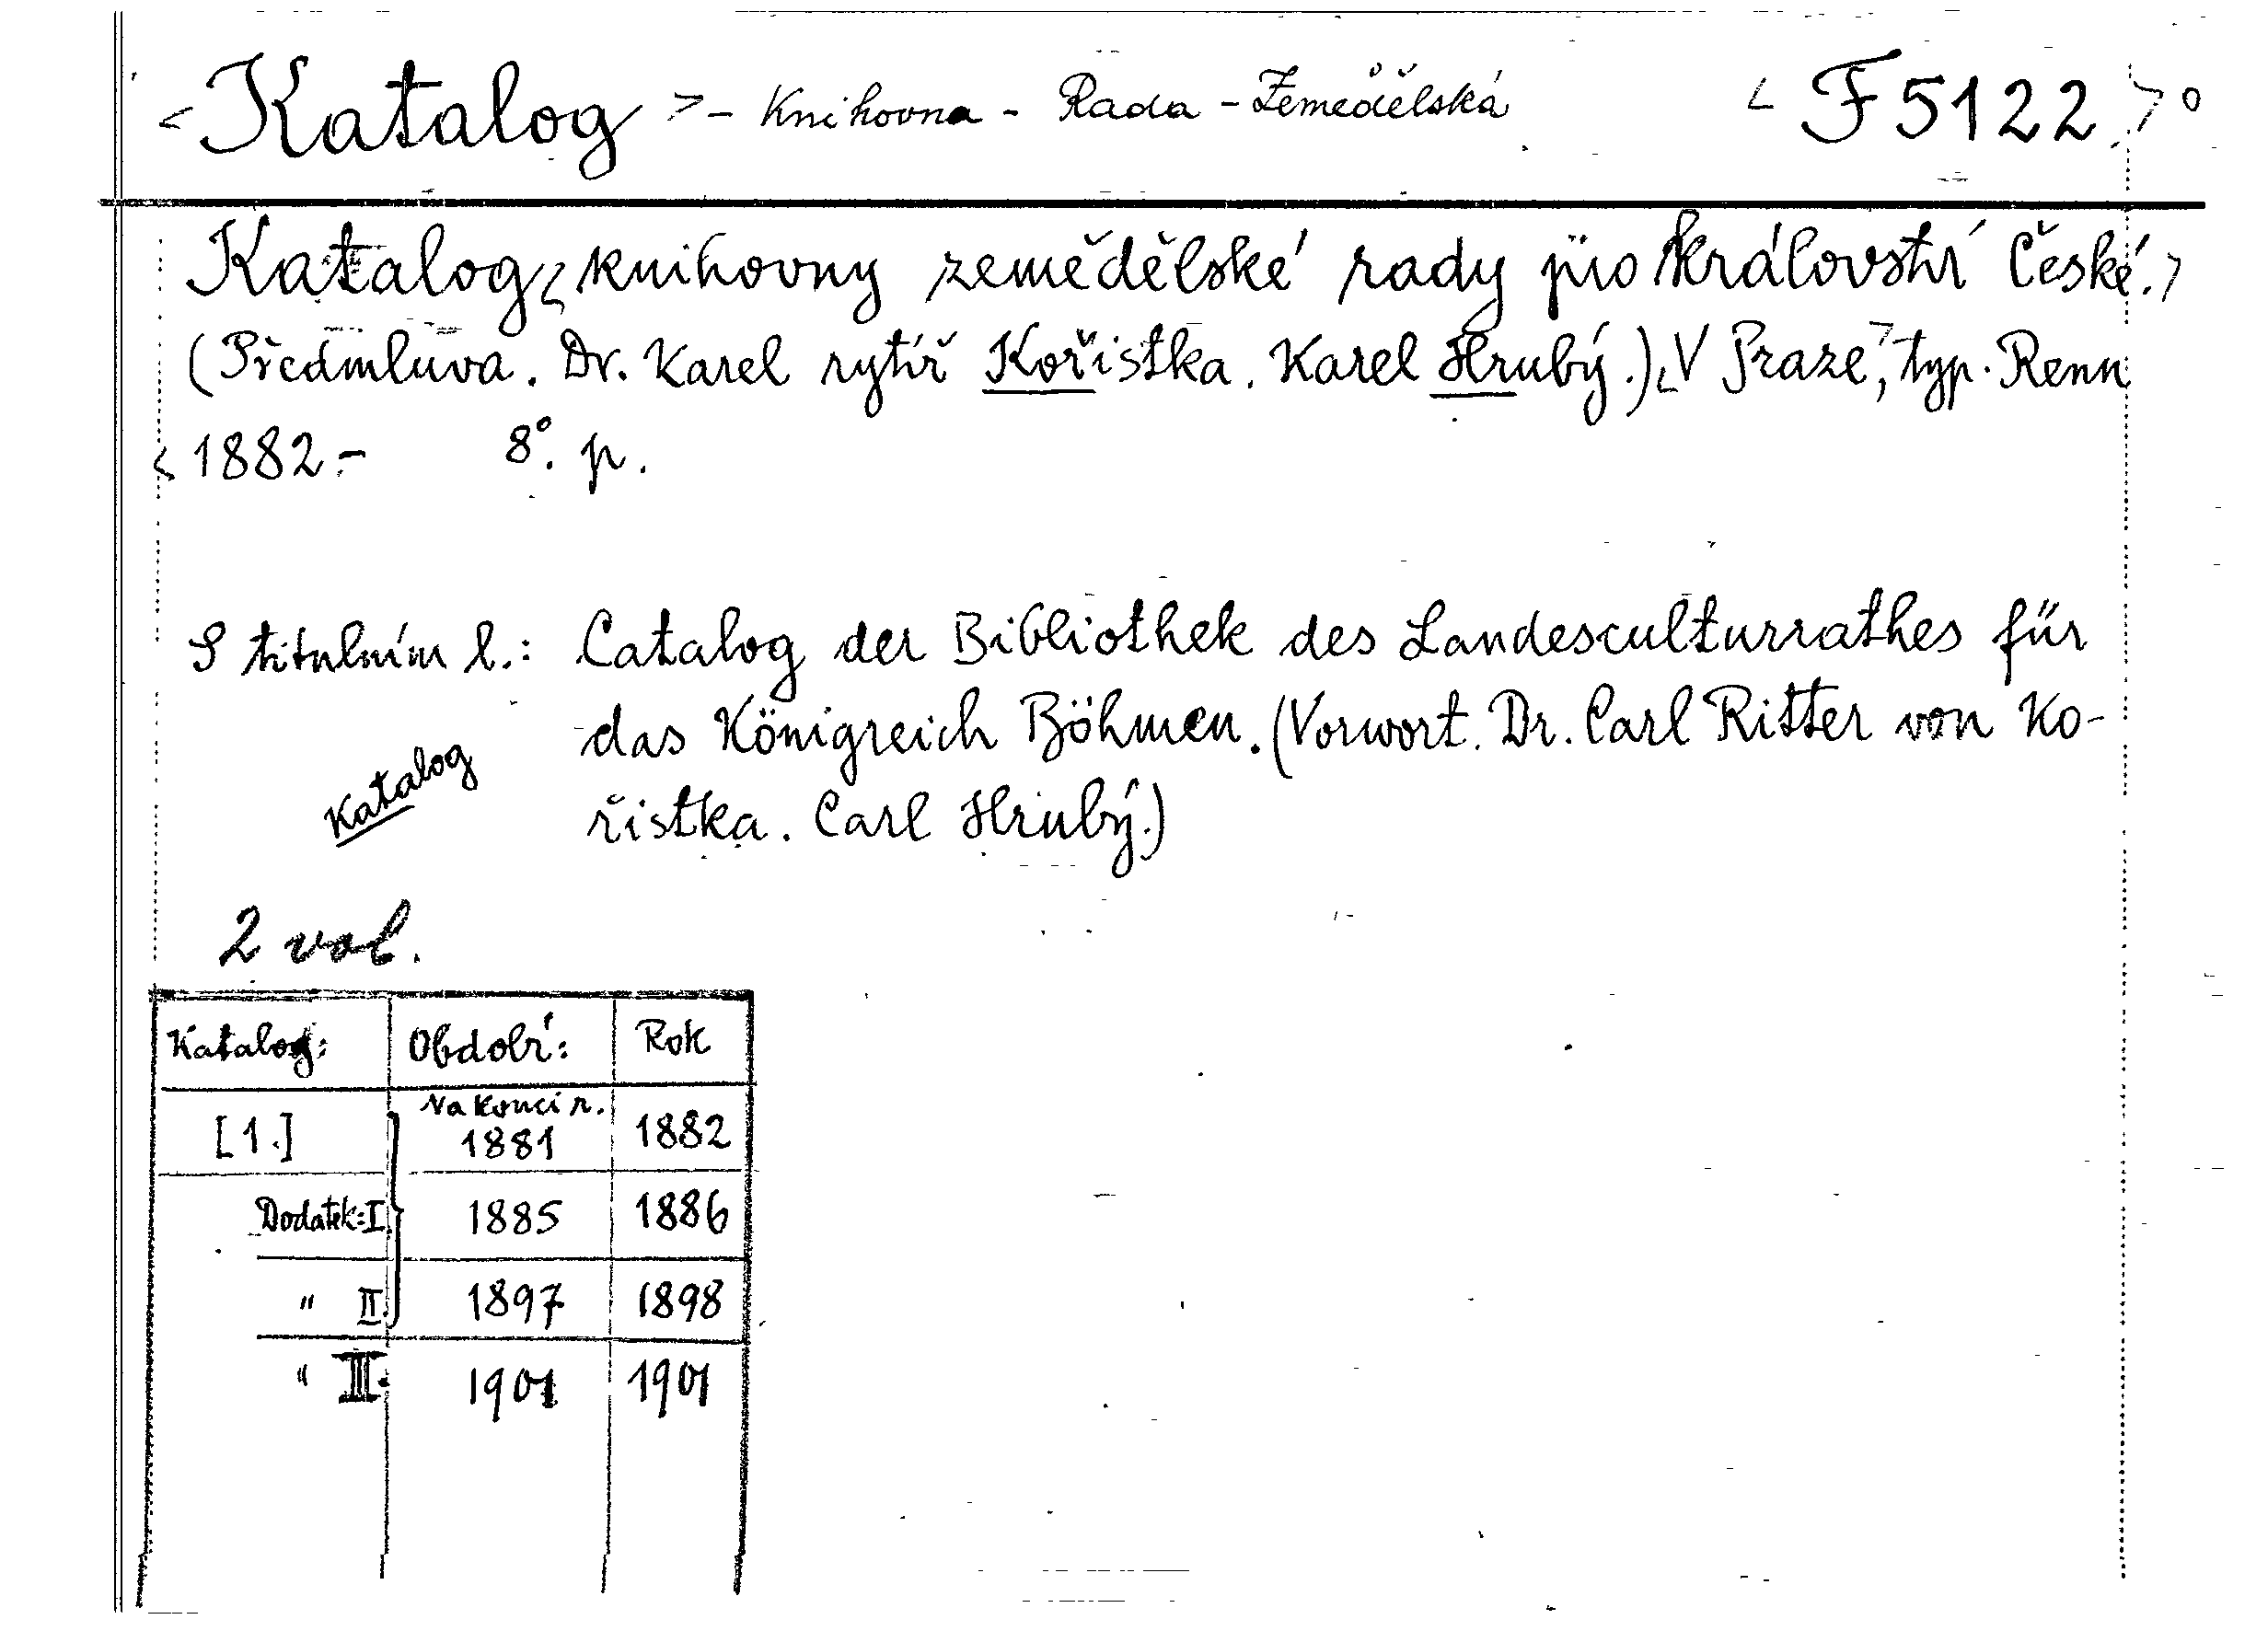 <Katalog> - Knihovna - Rada - Zemědělská <F 5122>°
Katalog <knihovny zemědělské rady pro království České.>
(Předmluva. Dr. Karel rytíř Kořistka. Karel Hrubý.) <V Praze>, typ. Renn
<1882.- 8°. p.
S titulním l.: Catalog der Bibliothek des Landesculturrathes für
das Königreich Böhmen. (Vorwort. Dr. Carl Ritter von Ko-
řistka. Carl Hrubý.)
Katalog
2 vol.
Katalog: Období: Rok
[1.] Na konci r. 1881 1882
Dodatek: I. 1885 1886
" II. 1897 1898
" III. 1901 1901